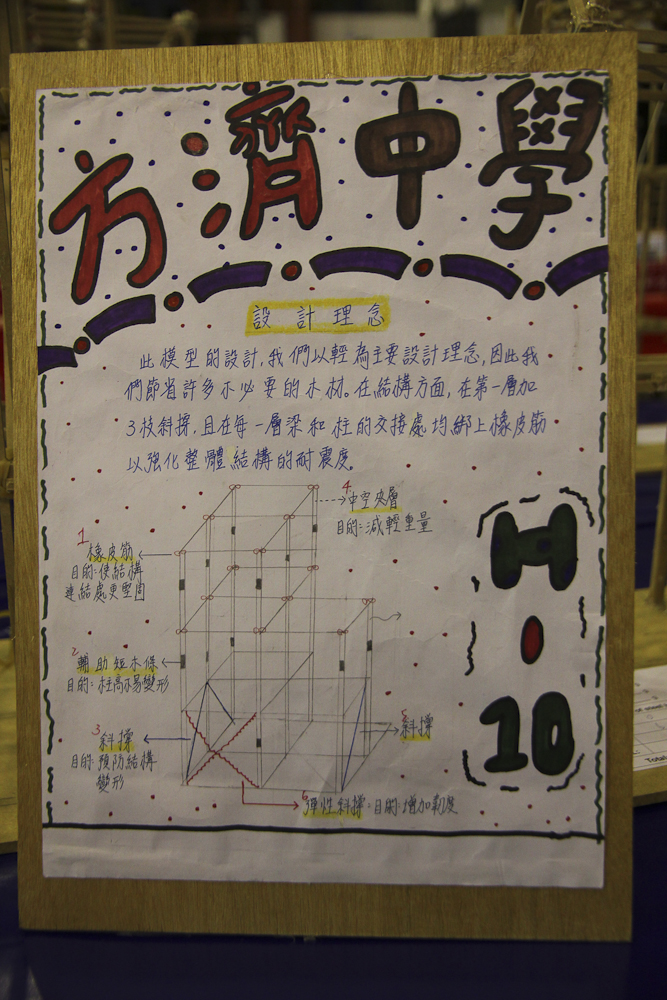 方濟中學
設計理念
此模型的設計,我們以輕為主要設計理念,因此我
們節省許多不必要的木材。在結構方面,在第一層加
3枝斜撐,且在每一層梁和柱的交接處均綁上橡皮筋
以強化整體結構的耐震度。
4
中空夾層
目的:減輕重量
1
橡皮筋
目的:使結構
連結處更堅固
H
·
10
2
輔助短木條
目的:柱高不易變形
3
斜撐
目的:預防結構
變形
5
斜撐
6
彈性斜撐:目的:增加勁度
Total